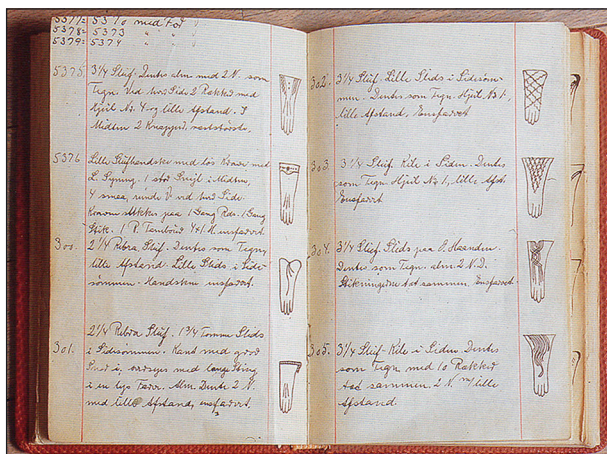 5377= 5370 med Tod
5378= 5373 " " "
5379= 5374 " " "
5375. 3¼ Stúf. Dentes alm med 2 N. som
Tegn. Ved hver Side 2 Rækker med
Hjul Nr. 4 og lille Afstand. I
Midten 2 Knapper,
5376 Lille Stúfhandske med lös Krave med
L. Syning. 1 stor i Midten,
4 smaa, runde ved hver Side.
Kraven paa 1 Gang Rdr. 1 Gang
Stik. 1 R. Tambour 4x1 N. ensfarvet.
300. 2¼ Ribra Stúf. Dentes som Tegn,
lille Afstand. Lille Slids i Side-
sömmen. Handsken ensfarvet.
301. 2¼ Ribra Stúf. 1¾ Tomme Slids
i Sidesömmen. Kant med
i, med lange Sting
i en lys Farve. Alm. Dente 2 N.
med lille Afstand, ensfarvet.
302. 3¼ Stúf. Lille Slids i Sidesöm-
men. Dentes som Tegn. Hjul Nr. 1,
lille Afstand, Ensfarvet
303. 3¼ Stúf. Kile i Siden. Dentes
som Tegn. Hjul Nr. 1, lille Afst.
Ensfarvet.
304. 3¼ Stúf. Slids paa O. Haanden.
Dentes som Tegn. alm 2 N. D.
Stikningerne tæt sammen. Ensfarvet.
305. 3¼ Stúf. Kile i Siden. Dentes
som Tegn. med 10 Rækker
tæt sammen. 2 N. m/ lille
Afstand.